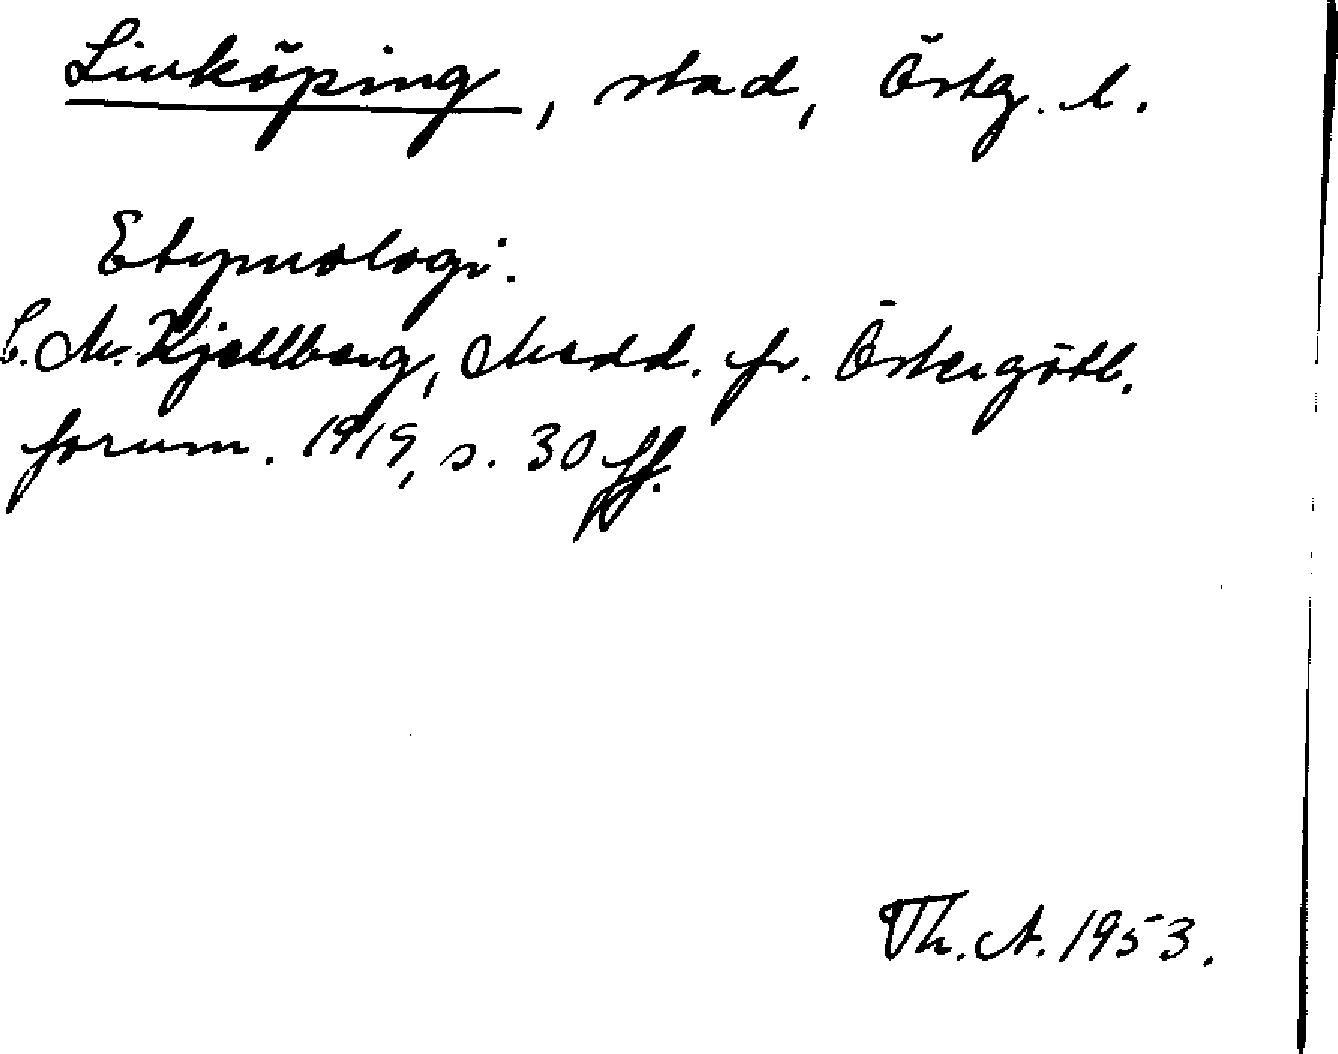 Linköping, stad, Östg. l.
Etymologi.
C. M. Kjellberg, Medd. fr. Östergötl.
fornm. 1919, s. 30 ff.
Th. A. 1953.